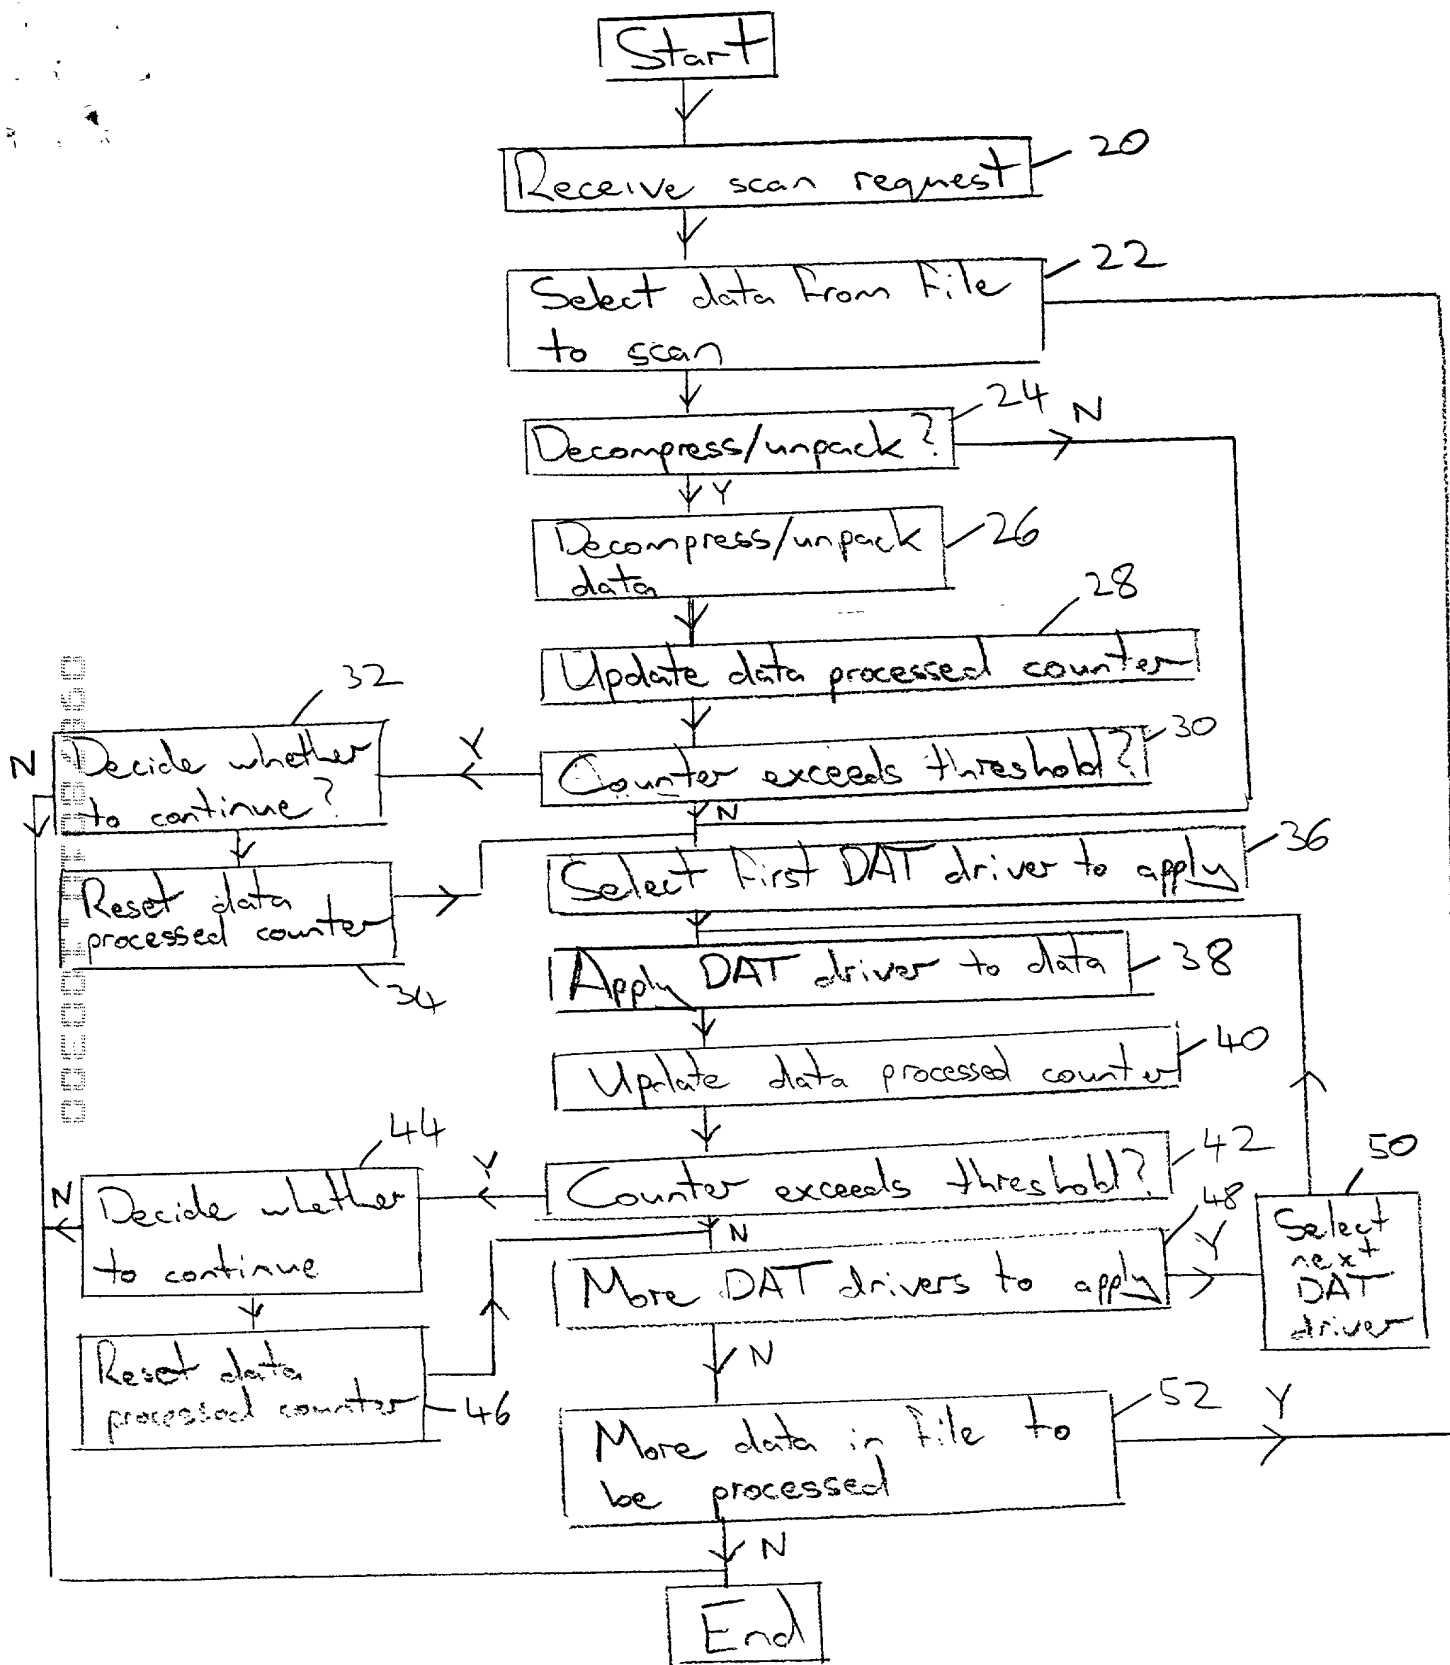 Start
Receive scan request
20
Select data from file
to scan
22
Decompress/unpack?
24
N
Y
Decompress/unpack
data
26
28
Update data processed counter
32
N
Decide whether
to continue?
Y
Counter exceeds threshold?
30
N
Reset data
processed counter
34
Select first DAT driver to apply
36
Apply DAT driver to data
38
Update data processed counter
40
44
N
Decide whether
to continue
Y
Counter exceeds threshold?
42
N
Y
Reset data
processed counter
46
More DAT drivers to apply
48
Y
50
Select
next
DAT
driver
N
More data in file to
be processed
52
Y
N
End